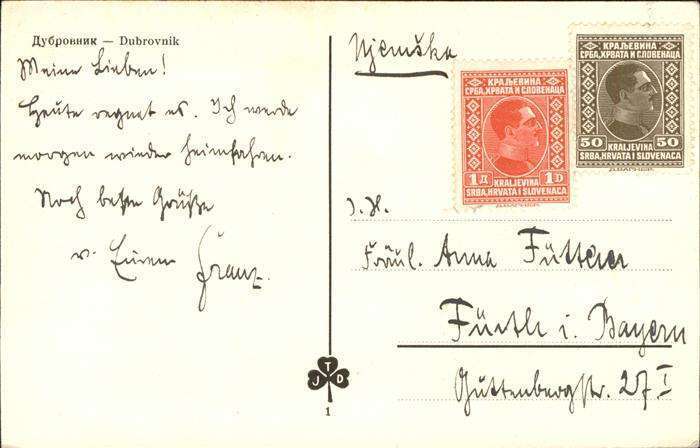 Дубровник — Dubrovnik
Meine Lieben!
Heute regnet es. Ich werde
morgen wieder heimfahren.
Noch beste Grüße
v. Eurem Franz.
Njemška
КРАЉЕВИНА
СРБА, ХРВАТА И СЛОВЕНАЦА
1 Д 1 D
KRALJEVINA
SRBA, HRVATA I SLOVENACA
Д.ВАГНЕР.
КРАЉЕВИНА
СРБА, ХРВАТА И СЛОВЕНАЦА
50 50
KRALJEVINA
SRBA, HRVATA I SLOVENACA
Д.ВАГНЕР.
Fräul. Anna Fütterer
Fürth i. Bayern
Guttenbergstr. 27 I
J T D
1